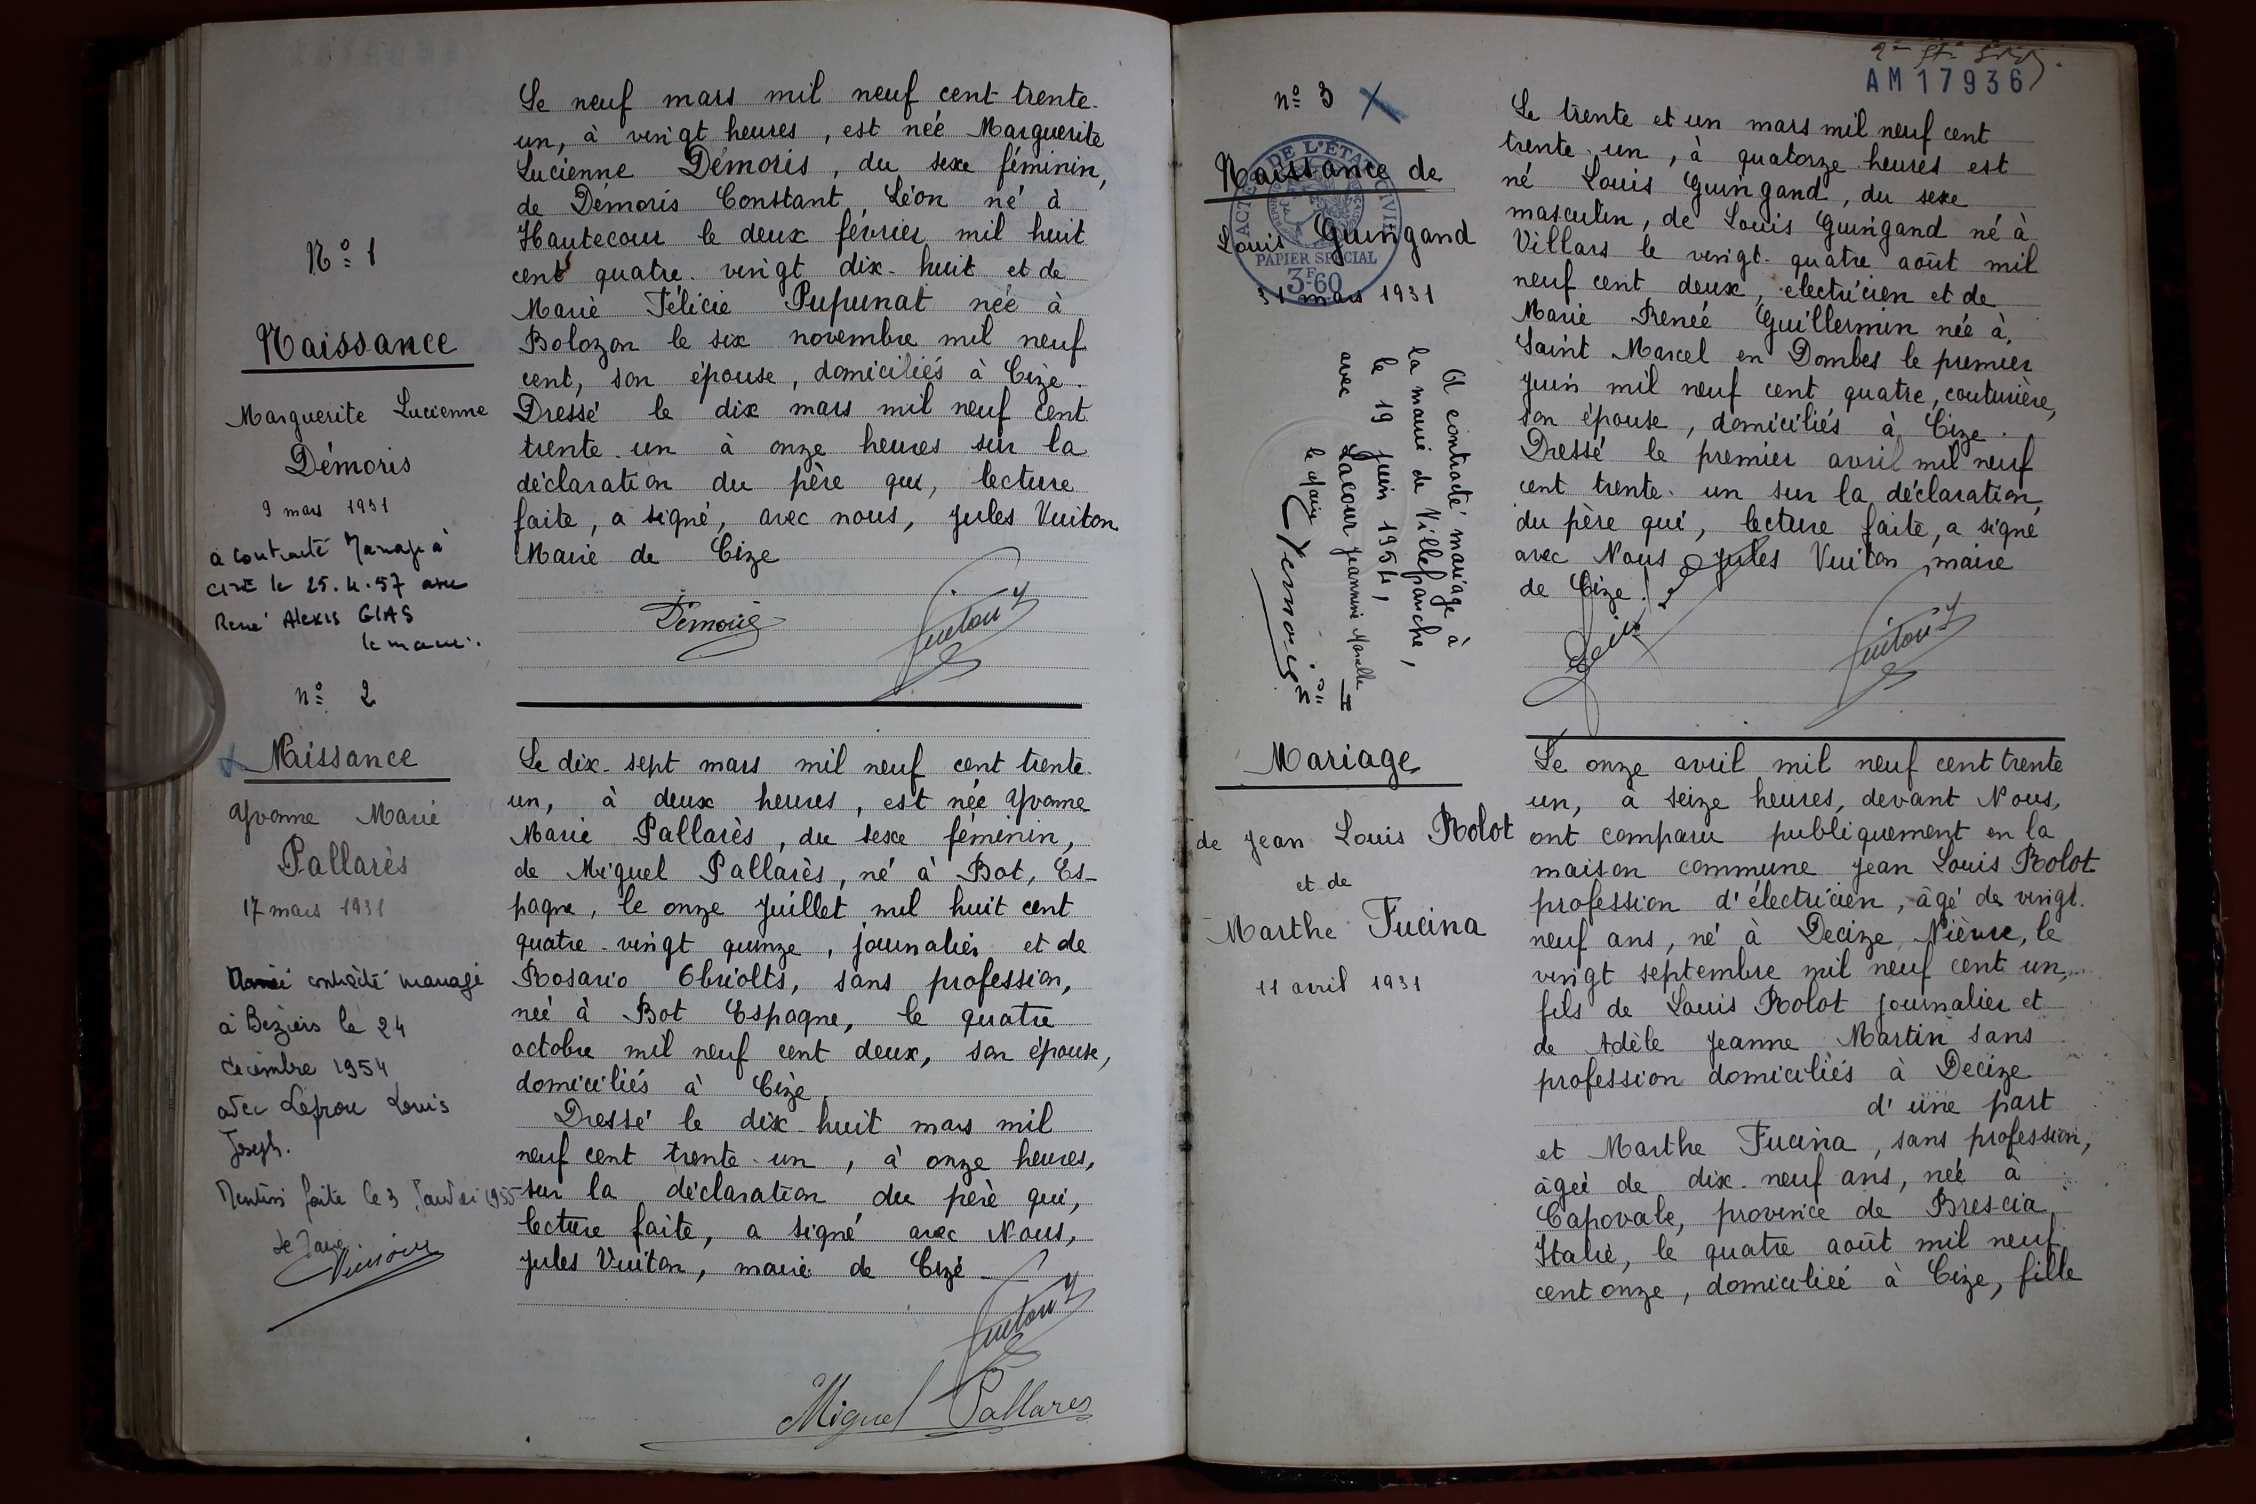 N° 1
Naissance
Marguerite Lucienne
Démoris
9 mars 1931
a contracté mariage à
CIZE le 25.4.57 avec
René Alexis GIAS
le maire.
Le neuf mars mil neuf cent trente-
un, à vingt heures, est née Marguerite
Lucienne Démoris, du sexe féminin,
de Démoris Constant, Léon né à
Hautecour le deux février mil huit
cent quatre-vingt dix-huit et de
Marie Félicie Pupunat née à
Bolozon le six novembre mil neuf
cent, son épouse, domiciliés à Cize.
Dressé le dix mars mil neuf cent
trente-un à onze heures sur la
déclaration du père qui, lecture
faite, a signé, avec nous, Jules Vuiton
Maire de Cize
Démoris
Vuiton J
n° 2
Naissance
Yvonne Marie
Pallarès
17 mars 1931
contracté mariage
à Béziers le 24
décembre 1954
avec Lefrou Louis
Joseph.
Mention faite le 3 Janvier 1955
Le Maire
Le dix-sept mars mil neuf cent trente-
un, à deux heures, est née Yvonne
Marie Pallarès, du sexe féminin,
de Miguel Pallarès, né à Bot, Es-
pagne, le onze Juillet mil huit cent
quatre-vingt quinze, journalier et de
Rosario Obiolts, sans profession,
née à Bot Espagne, le quatre
octobre mil neuf cent deux, son épouse,
domiciliés à Cize
Dressé le dix-huit mars mil
neuf cent trente-un, à onze heures,
sur la déclaration du père qui,
lecture faite, a signé avec Nous,
Jules Vuiton, maire de Cize
Vuiton J
Miguel Pallares
AM17936
n° 3
Naissance de
Louis Guingand
31 mars 1931
ACTES DE L'ÉTAT CIVIL
PAPIER SPÉCIAL
3F.60
A contracté mariage à
la mairie de Villefranche,
le 19 juin 1954,
avec Lacour Jeannine Marcelle
le Maire
Le trente et un mars mil neuf cent
trente-un, à quatorze heures est
né Louis Guingand, du sexe
masculin, de Louis Guingand né à
Villars le vingt-quatre août mil
neuf cent deux, électricien et de
Marie Renée Guillermin née à
Saint Marcel en Dombes le premier
Juin mil neuf cent quatre, couturière,
son épouse, domiciliés à Cize.
Dressé le premier avril mil neuf
cent trente-un sur la déclaration
du père qui, lecture faite, a signé
avec Nous Jules Vuiton, maire
de Cize.
Vuiton J
Mariage
de Jean Louis Rolot
et de
Marthe Fucina
11 avril 1931
Le onze avril mil neuf cent trente
un, à seize heures, devant Nous,
ont comparu publiquement en la
maison commune Jean Louis Rolot
profession d'électricien, âgé de vingt-
neuf ans, né à Decize, Nièvre, le
vingt septembre mil neuf cent un,
fils de Louis Rolot journalier et
de Adèle Jeanne Martin sans
profession domiciliés à Decize
d'une part
et Marthe Fucina, sans profession,
âgée de dix-neuf ans, née à
Capovale, province de Brescia,
Italie, le quatre août mil neuf
cent onze, domiciliée à Cize, fille